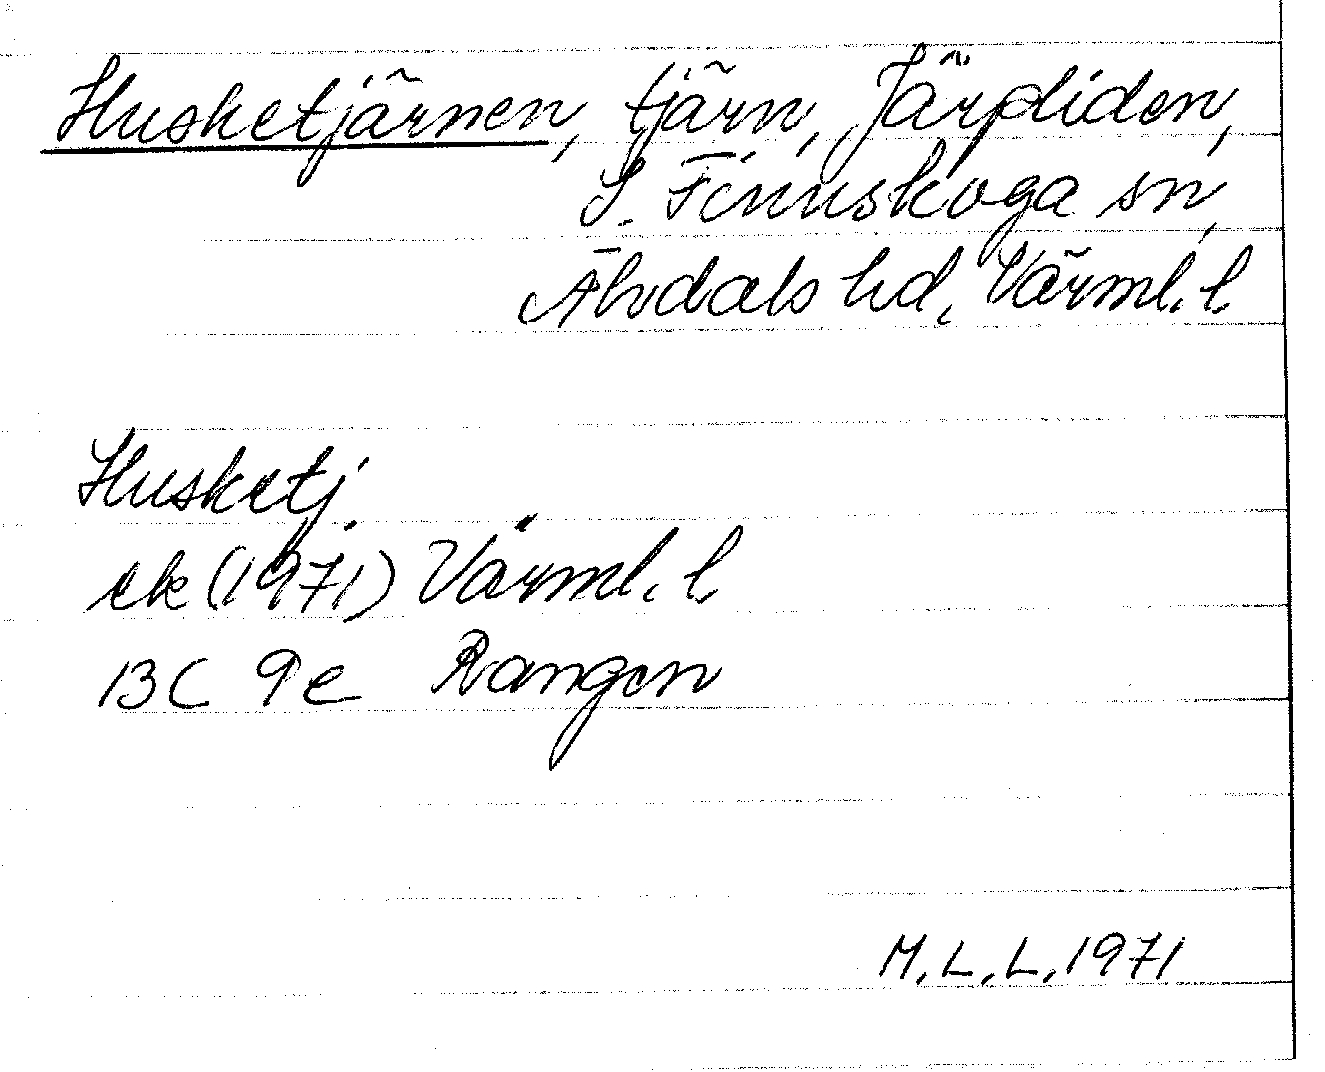 Husketjärnen, tjärn, Järpliden,
S. Finnskoga sn,
Älvdals hd, Värml. l.
Husketj.
ek (1971) Värml. l.
13C 9e Rangen
M.L.L. 1971